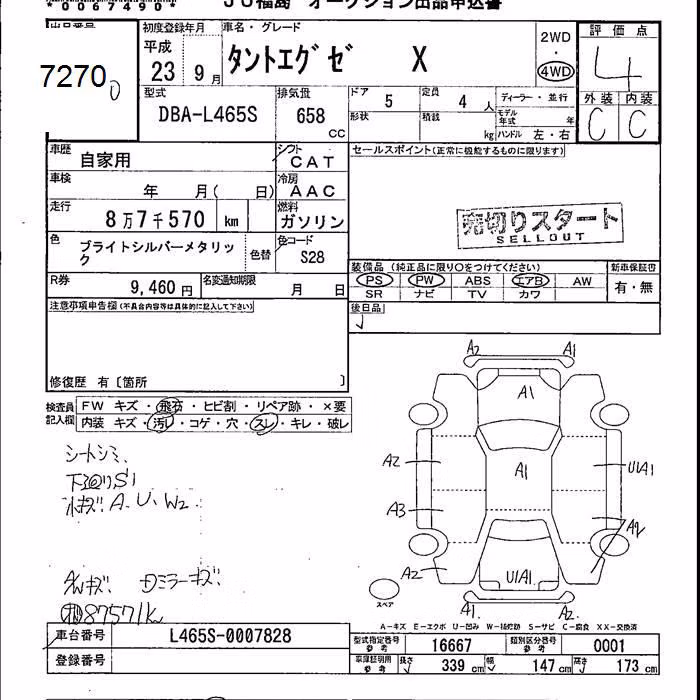 *0067490*
JU福島 オークション出品申込書
出品番号
72700
初度登録年月
平成
23 9月
車名・グレード
タントエグゼ X
2WD
4WD
評価点
4
外装 内装
C C
型式
DBA-L465S
排気量
658
CC
ドア
5
定員
4人
ディーラー・並行
形状
積載
kg
モデル年式
年
ハンドル 左・右
車歴
自家用
シフト
CAT
セールスポイント(正常に機能するものに限ります)
車検
年 月( 日)
冷房
AAC
走行
8万7千570 km
燃料
ガソリン
売切りスタート
SELLOUT
色
ブライトシルバーメタリック
色替
色コード
S28
装備品(純正品に限り○をつけてください)
新車保証書
PS PW ABS エアB AW
SR ナビ TV カワ
有・無
R券
9,460円
名変通知期限
月 日
後日品
注意事項申告欄(不具合内容等は具体的に記入して下さい)
修復歴 有〔箇所 〕
検査員記入欄
FW キズ・飛石・ヒビ割・リペア跡・×要
内装 キズ・汚れ・コゲ・穴・スレ・キレ・破レ
シートシミ、
下回りS1
小キズ A、U、W2
A/Wキズ、Dミラーキズ、
87571k
A2 A1
A1
A2 A1 U1A1
A3 A2
A2 U1A1
A1 A2
スペア
A-キズ E-エクボ U-凹み W-補修跡 S-サビ C-腐食 XX-交換済
車台番号
L465S-0007828
登録番号
型式指定番号
参考
16667
類別区分番号
参考
0001
車庫証明用
参考
長さ 339 cm 幅 147 cm 高さ 173 cm